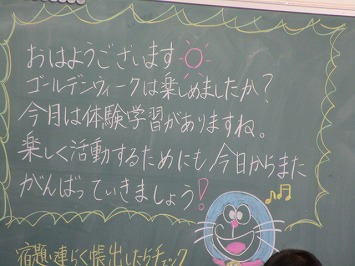 おはようございます
ゴールデンウィークは楽しめましたか?
今月は体験学習がありますね。
楽しく活動するためにも今日からまた
がんばっていきましょう!
宿題・連らく帳出したらチェック